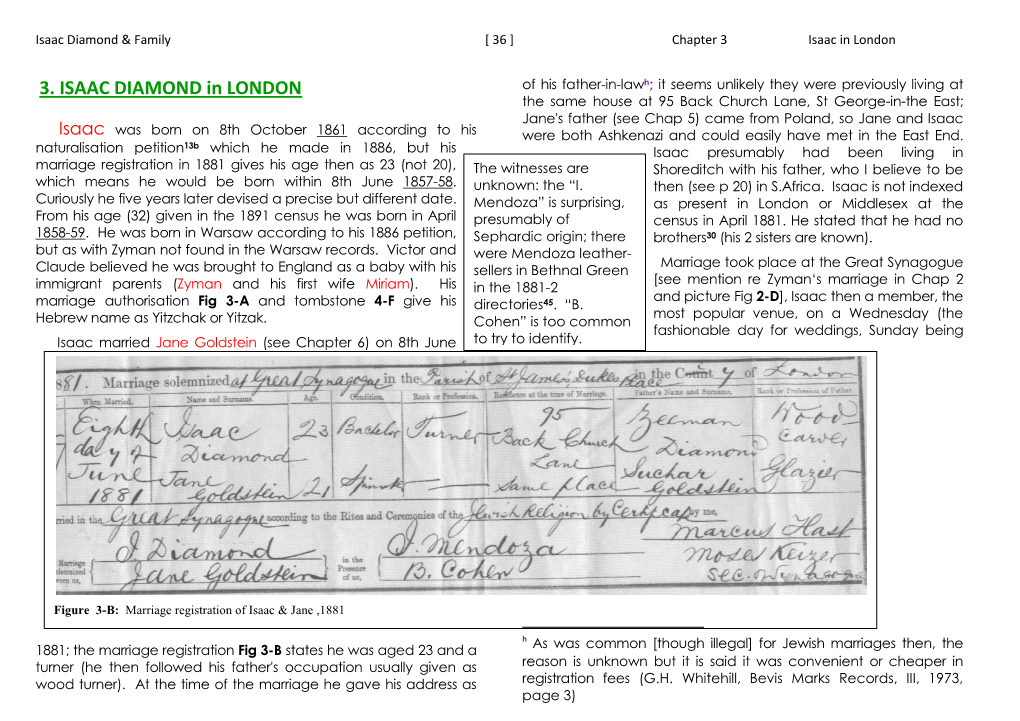 Isaac Diamond & Family [ 36 ] Chapter 3 Isaac in London
3. ISAAC DIAMOND in LONDON
Isaac was born on 8th October 1861 according to his
naturalisation petition13b which he made in 1886, but his
marriage registration in 1881 gives his age then as 23 (not 20),
which means he would be born within 8th June 1857-58.
Curiously he five years later devised a precise but different date.
From his age (32) given in the 1891 census he was born in April
1858-59. He was born in Warsaw according to his 1886 petition,
but as with Zyman not found in the Warsaw records. Victor and
Claude believed he was brought to England as a baby with his
immigrant parents (Zyman and his first wife Miriam). His
marriage authorisation Fig 3-A and tombstone 4-F give his
Hebrew name as Yitzchak or Yitzak.
Isaac married Jane Goldstein (see Chapter 6) on 8th June
of his father-in-lawh; it seems unlikely they were previously living at
the same house at 95 Back Church Lane, St George-in-the East;
Jane's father (see Chap 5) came from Poland, so Jane and Isaac
were both Ashkenazi and could easily have met in the East End.
Isaac presumably had been living in
Shoreditch with his father, who I believe to be
then (see p 20) in S.Africa. Isaac is not indexed
as present in London or Middlesex at the
census in April 1881. He stated that he had no
brothers30 (his 2 sisters are known).
Marriage took place at the Great Synagogue
[see mention re Zyman‘s marriage in Chap 2
and picture Fig 2-D], Isaac then a member, the
most popular venue, on a Wednesday (the
fashionable day for weddings, Sunday being
The witnesses are
unknown: the “I.
Mendoza” is surprising,
presumably of
Sephardic origin; there
were Mendoza leather-
sellers in Bethnal Green
in the 1881-2
directories45. “B.
Cohen” is too common
to try to identify.
881. Marriage solemnized at Great Synagogue in the Parish of St James's Dukes Place in the County of London
When Married. Name and Surname. Age. Condition. Rank or Profession. Residence at the time of Marriage. Father's Name and Surname. Rank or Profession of Father.
Eighth day of June 1881
Isaac Diamond 23 Bachelor Turner 95 Back Church Lane Zeeman Diamond Wood Carver
Jane Goldstein 21 Spinster — Same place Suchar Goldstein Glazier
ried in the Great Synagogue according to the Rites and Ceremonies of the Jewish Religion by by me,
Marriage
lemnized
ween us,
I. Diamond
Jane Goldstein
in the
Presence
of us,
I. Mendoza
B. Cohen
Marcus Hast
Moses Keizer
Sec. Synagogue
Figure 3-B: Marriage registration of Isaac & Jane ,1881
1881; the marriage registration Fig 3-B states he was aged 23 and a
turner (he then followed his father's occupation usually given as
wood turner). At the time of the marriage he gave his address as
h As was common [though illegal] for Jewish marriages then, the
reason is unknown but it is said it was convenient or cheaper in
registration fees (G.H. Whitehill, Bevis Marks Records, III, 1973,
page 3)